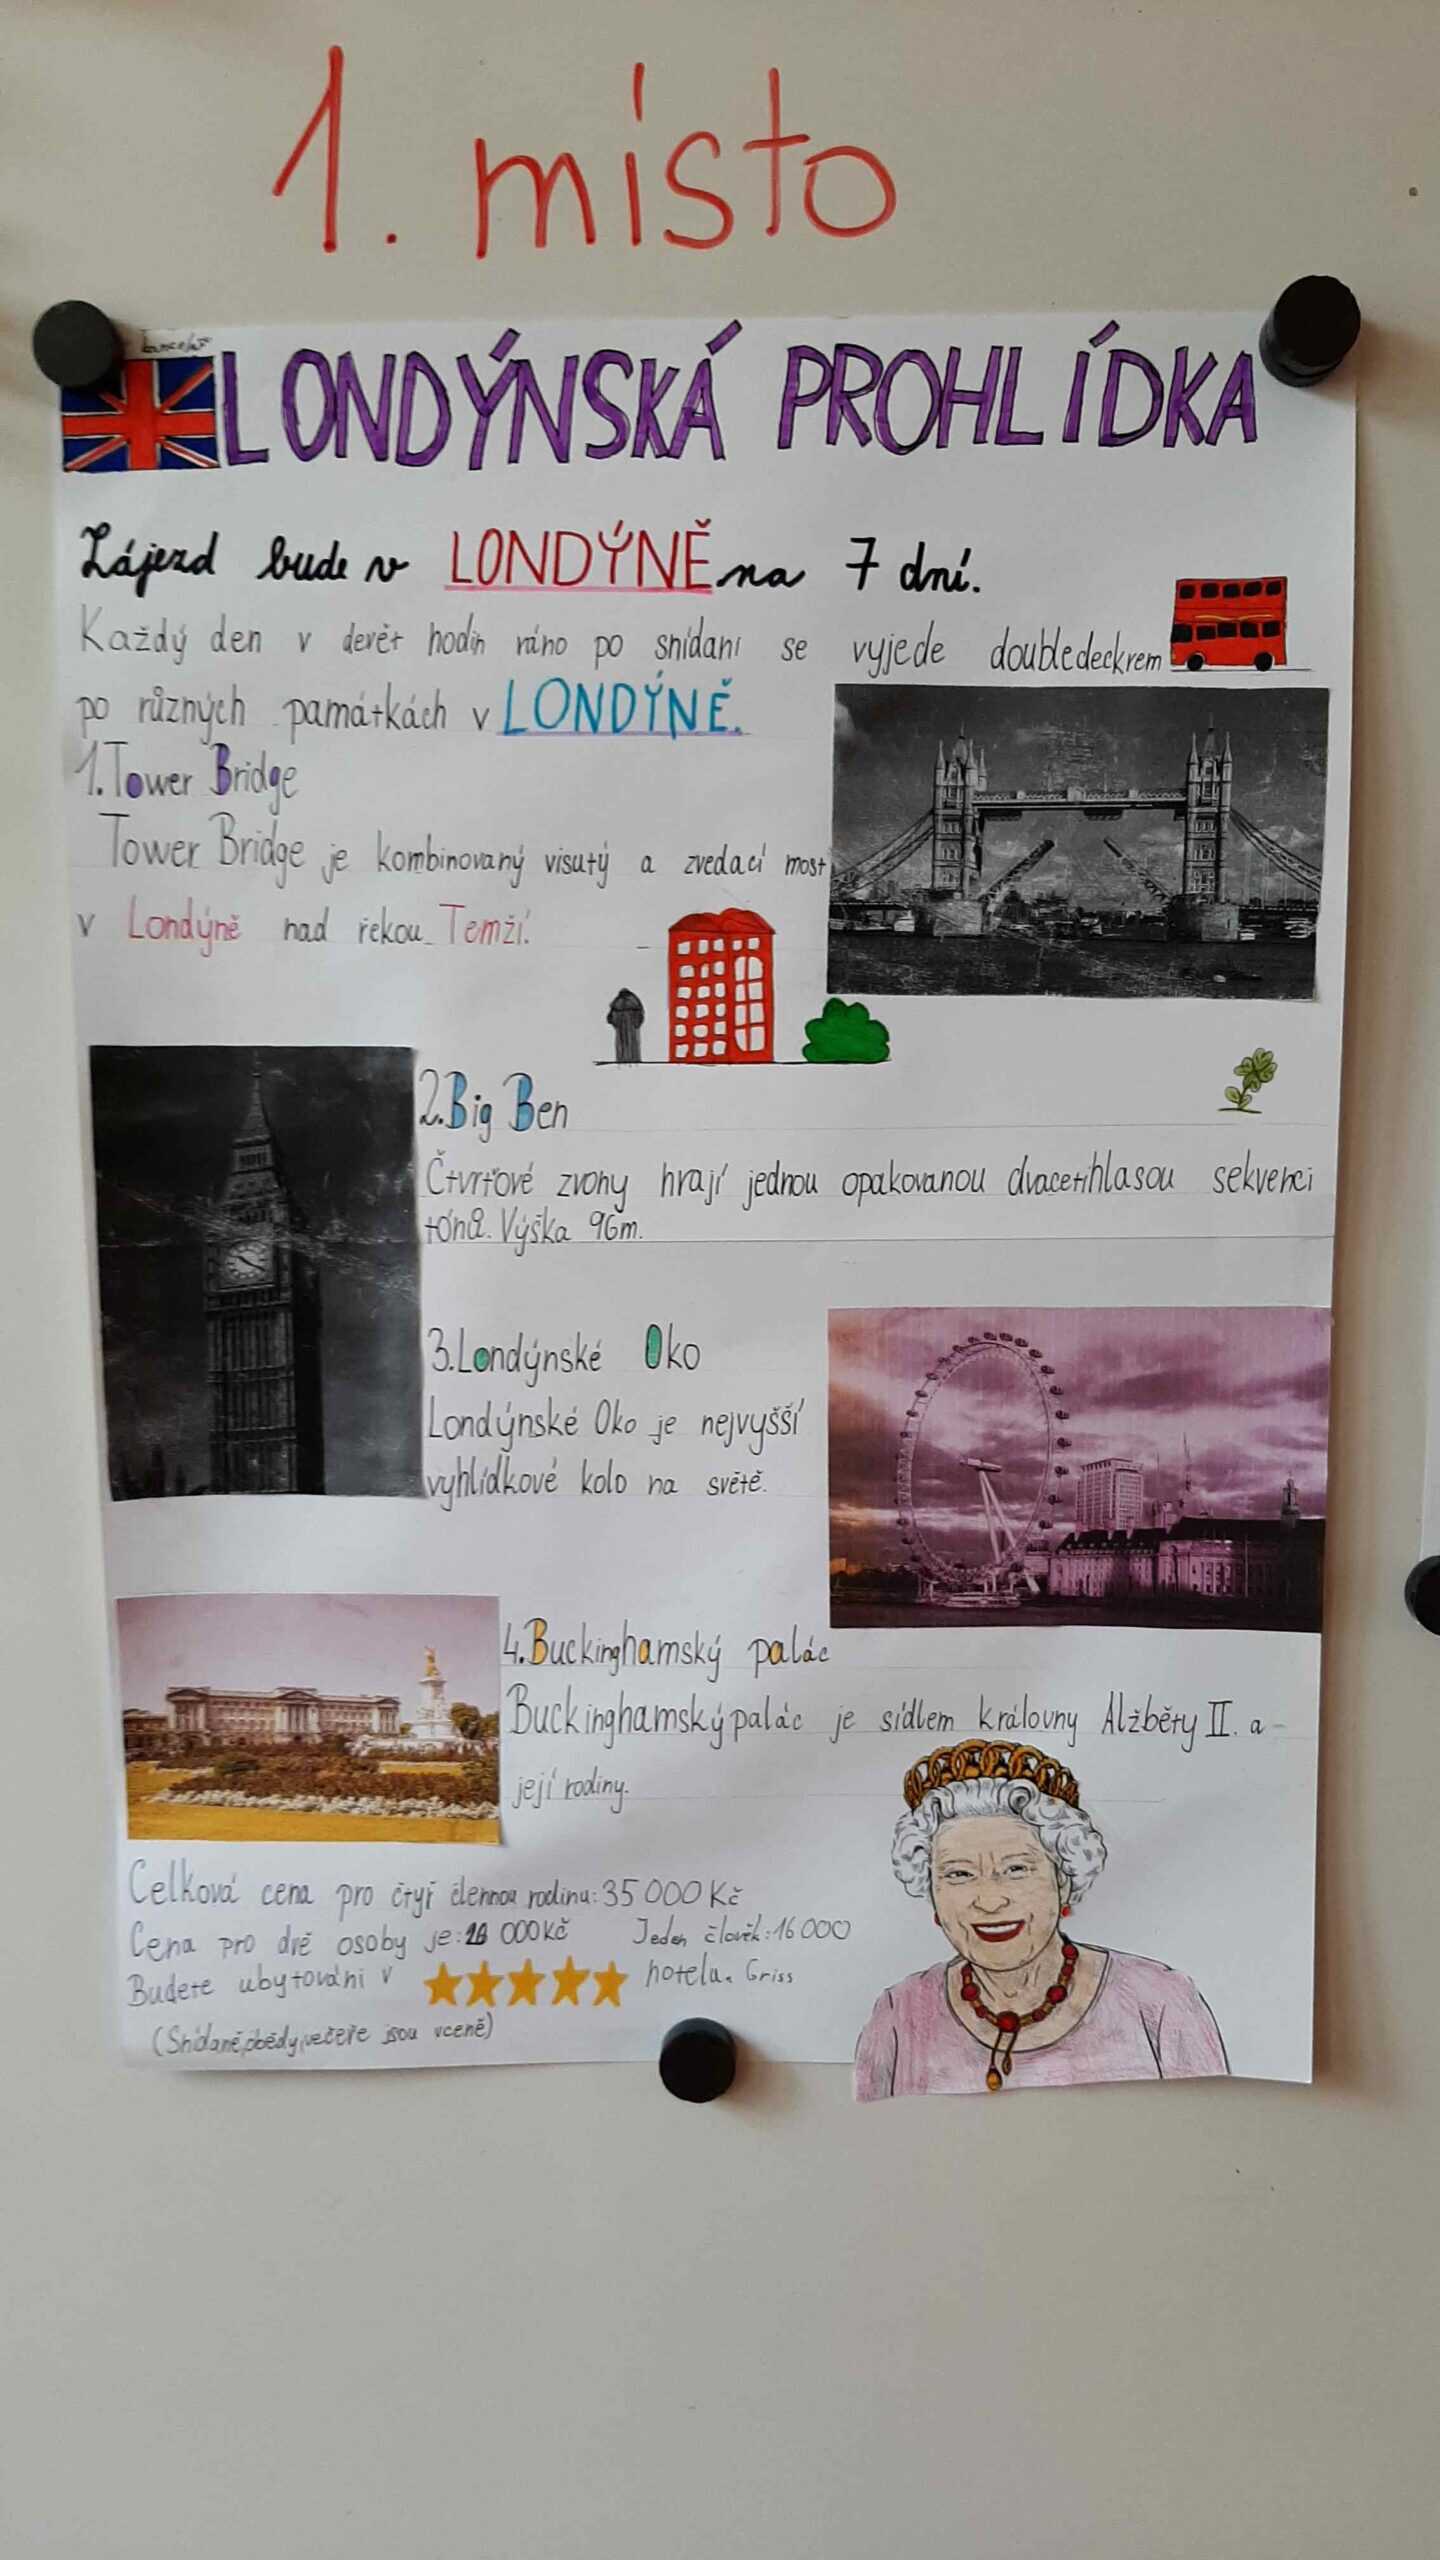 1. místo
LONDÝNSKÁ PROHLÍDKA
Zájezd bude v LONDÝNĚ na 7 dní.
Každý den v devět hodin ráno po snídani se vyjede doubledeckrem
po různých památkách v LONDÝNĚ.
1. Tower Bridge
Tower Bridge je kombinovaný visutý a zvedací most
v Londýně nad řekou Temží.
2. Big Ben
Čtvrťové zvony hrají jednou opakovanou dvacetihlasou sekvenci
tónů. Výška 96m.
3. Londýnské Oko
Londýnské Oko je nejvyšší
vyhlídkové kolo na světě.
4. Buckinghamský palác
Buckinghamský palác je sídlem královny Alžběty II. a
její rodiny.
Celková cena pro čtyř člennou rodinu: 35 000 Kč
Cena pro dvě osoby je: 000Kč Jeden člověk: 16 000
Budete ubytováni v hotelu. Griss
(Snídaně, obědy, večeře jsou vceně)